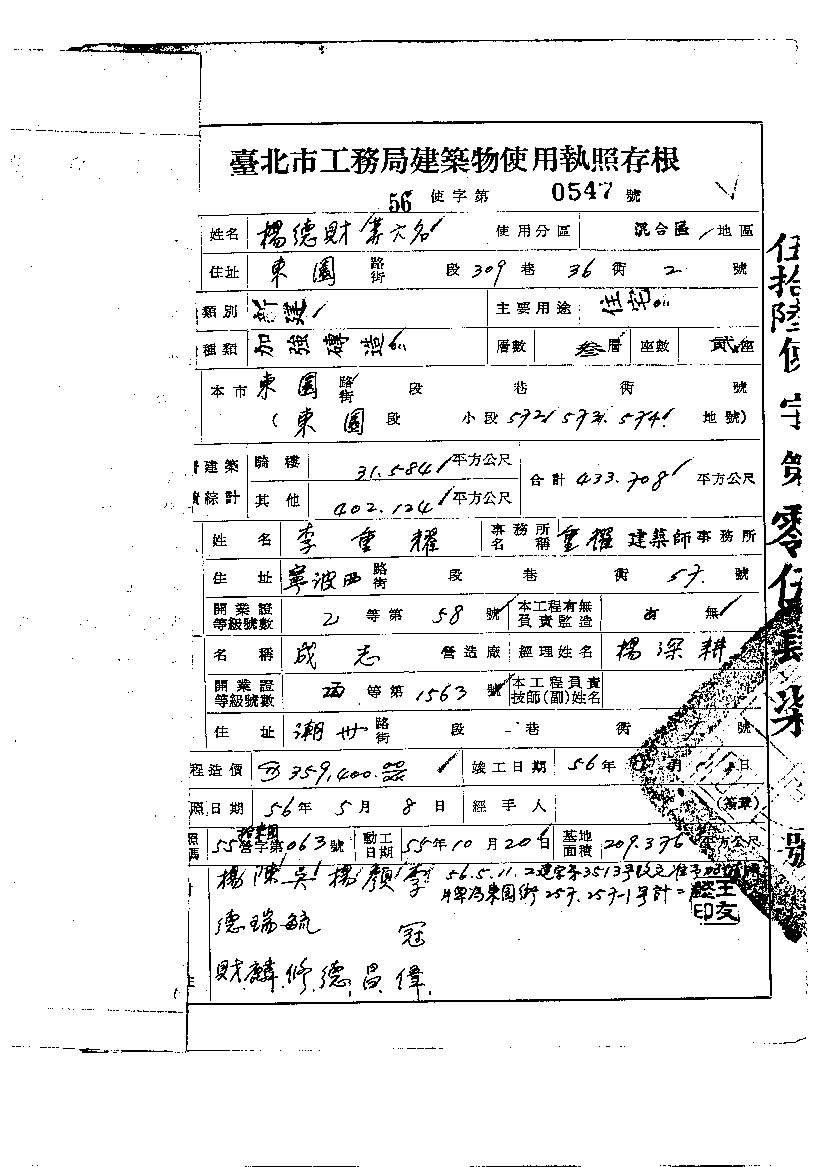 臺北市工務局建築物使用執照存根
56 使字第 0547 號
姓名 楊德財等六名 使用分區 混合區 地區
住址 東園 路街 段 309 巷 36 街 2 號
類別 新建 主要用途 住宅
種類 加強磚造 層數 叁層 座數 貳座
本市 東園 路街 段 巷 街 號
(東園 段 小段 572 573 574 地號)
建築 騎樓 31.584 平方公尺 合計 433.708 平方公尺
綜計 其他 402.124 平方公尺
姓名 李重耀 事務所名稱 重耀建築師事務所
住址 寧波西 路街 段 巷 街 57 號
開業證等級號數 乙等第 58 號 本工程有無負責監造 有 無
名稱 成志 營造廠 經理姓名 楊深耕
開業證等級號數 丙等第 1563 號 本工程負責技師(副)姓名
住址 潮州 路街 段 巷 街 號
程造價 359,400.00 竣工日期 56年 月 日
照日期 56年5月8日 經手人 (簽章)
照碼 55 營字第 063 號 動工日期 55年10月20日 基地面積 209.376 平方公尺
楊德財 陳瑞麟 吳毓修 楊德 顏昌 李冠偉
56.5.11.
伍拾陸使字第零伍肆柒號